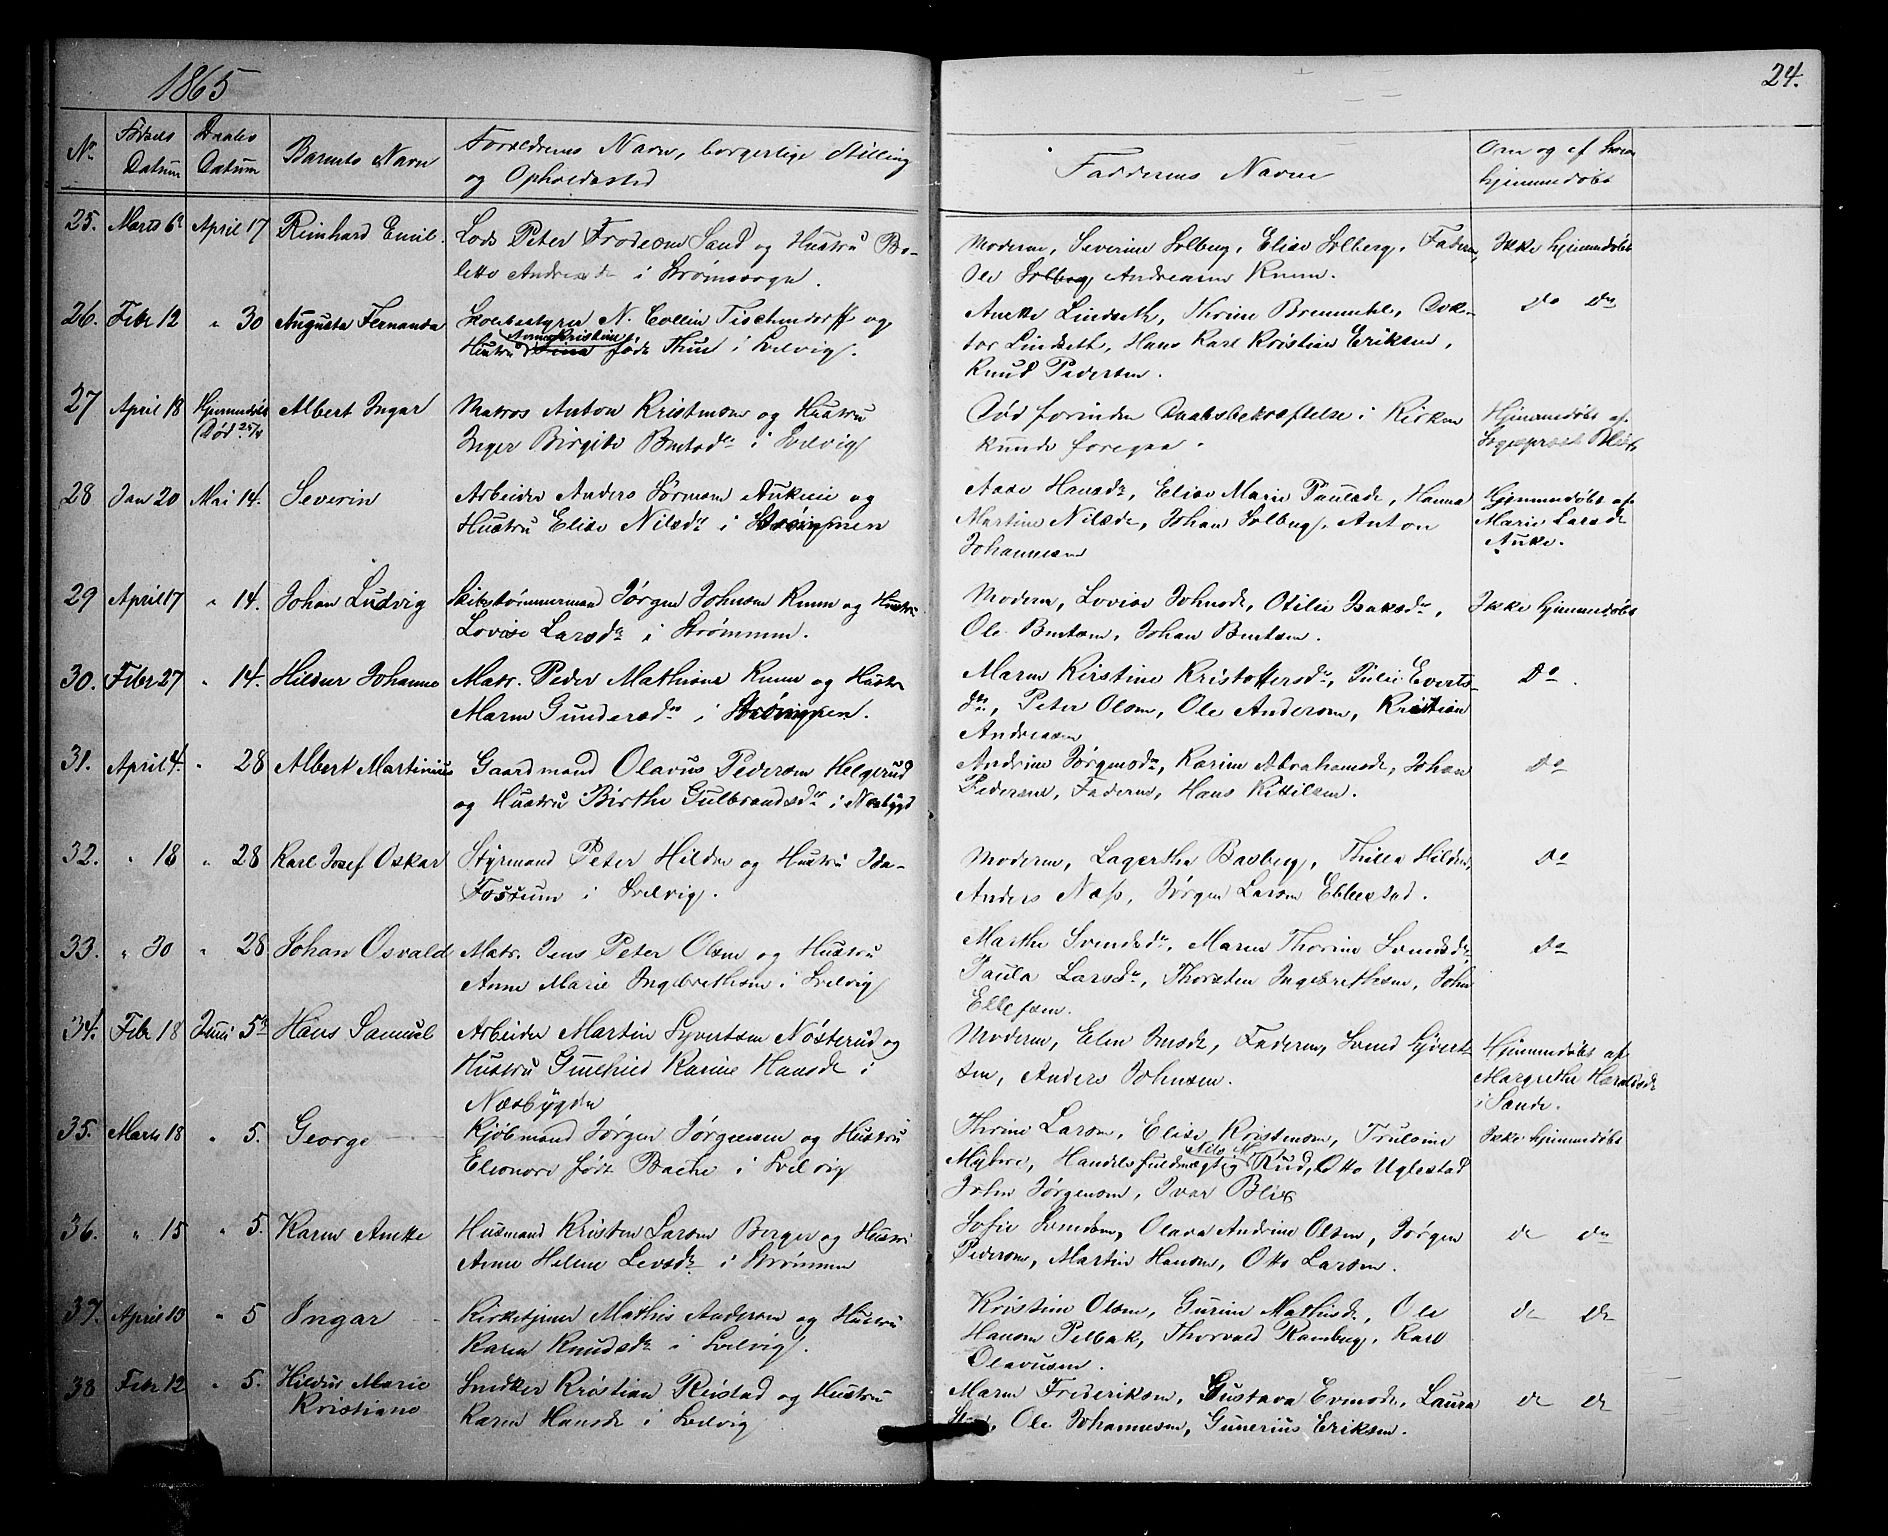 1865
24.
No. Fødsels Datum Daabs Datum Barnets Navn Forældrenes Navn, borgerlige Stilling
og Opholdssted
Faddernes Navne
Om og af hvem
hjemmedøbt
25. Marts 6 April 17 Reinhard Emil. Lods Peter Frodesen Sand og Hustru Bo-
lette i Strømssogn.
Moderen, Severine Solberg, Elise Solberg, Faderen,
Ole Solberg Andreasen Krum.
Ikke hjemmedøbt
26. Febr 12 " 30 Augusta Fernanda Skolebestyrer N. Collin Tischendorff og
Anna Kristine
Hustru født Thue i Svelvig.
Anette Lindseth, Thrine Dok-
tor Lindseth, Hans Karl Kristian Eriksen,
Knud Pedersen.
do do
27 April 18 Hjemmedøbt Albert Ingar Matros Anton Kristensen og Hustru
(Død 25/4 Inger Birgitte Berntsdr i Svelvig
Død forinden Daabsbekræftelse i Kirken
kunde foregaa.
Hjemmedøbt af
Sognepræst Blix
28 Jan 20 Mai 14. Severin Arbeider Anders Sørensen Aukeie og
Hustru Elise Nilsdr i Strømmen
Aase Hansdr, Elise Marie Paulsdr, Hanna
Martine Nilsdr, Johan Solberg, Anton
Johannesen
Hjemmedøbt af
Marie Larsdr
Auke.
29 April 17 " 14. Johan Ludvig Skibstømmermand Jørgen Johnsen Krum og Hustru
Lovise Larsdr i Strømmen.
Moderen, Lovise Johnsdr, Otilie Isaksdr,
Ole Berntsen, Johan Berntsen.
Ikke hjemmedøbt
30. Febr 27 " 14. Hildur Johanne Matr. Peder Mathisen Krum og Hustru
Maren Gundersdr i Strømmen.
Maren Kirstine Kristoffersdr, Julie Everts-
dr, Peter Olsen, Ole Andersen, Kristian
Andreasen
Do.
31. April 4. " 28 Albert Martinius Gaardmand Olavus Pedersen Helgerud
og Hustru Birthe Gulbrandsdr i Nesbygd
Andrine Jørgensdr, Karine Abrahamsdr, Johan
Pedersen, Faderen, Hans Kittilsen.
Do
32. " 18 " 28 Karl Josef Oskar Styrmand Peter Hilden og Hustru Ida
Fossum i Svelvig.
Moderen, Lagertha Basberg, Thilla Hilden,
Anders Næss, Jørgen Larsen Ebbestad.
Do
33. " 30 " 28 Johan Osvald Matr. Jens Peter Olsen og Hustru
Anne Marie Ingebrethsen i Svelvig
Marthe Svendsdr, Maren Thorine Svendsdr
Paula Larsdr, Thorsten Ingebrethsen, John
Ellefsen.
Do
34. Febr 18 Juni 5te Hans Samuel Arbeider Martin Syvertsen Nøsterud og
Hustru Gunhild Karine Hansdr i
Næsbygden
Moderen, Elen Jensdr, Faderen, Svend Syvert-
sen, Anders Johnsen.
Hjemmedøbt af
Margrethe Haraldsdr
i Sande.
35. Marts 18 " 5. George Kjøbmand Jørgen Jørgensen og Hustru
Eleonore født Bache i Svelvig
Thrine Larsen, Elise Kristensen, Trulsine
Myhre, Handelsfuldmægtig Nils M. Ruud, Otto Uglestad
John Jørgensen, Ivar Blix
Ikke hjemmedøbt
36. " 15 " 5. Karen Anette Husmand Kristen Larsen Berger og Hustru
Anne Helene Levsdr i Strømmen
Sofie Svendsen, Olava Andrine Olsen, Jørgen
Pedersen, Martin Hansen, Otto Larsen.
do do
37. April 13 " 5 Ingar Kirketjener Mathis Andersen og Hustru
Karen Knudsdr i Svelvig.
Kristine Olsen, Gurine Mathisdr, Ole
Hansen Pelbak, Thorvald Ramberg, Karl
Olavusen.
do do
38 Febr 12 " 5. Hildur Marie Snedker Kristian Reistad og Hustru
Kristiane Karen Hansdr i Svelvig
Maren Frederiksen, Gustava Evensdr, Laura
Ole Johannesen, Gunerius Eriksen.
do do